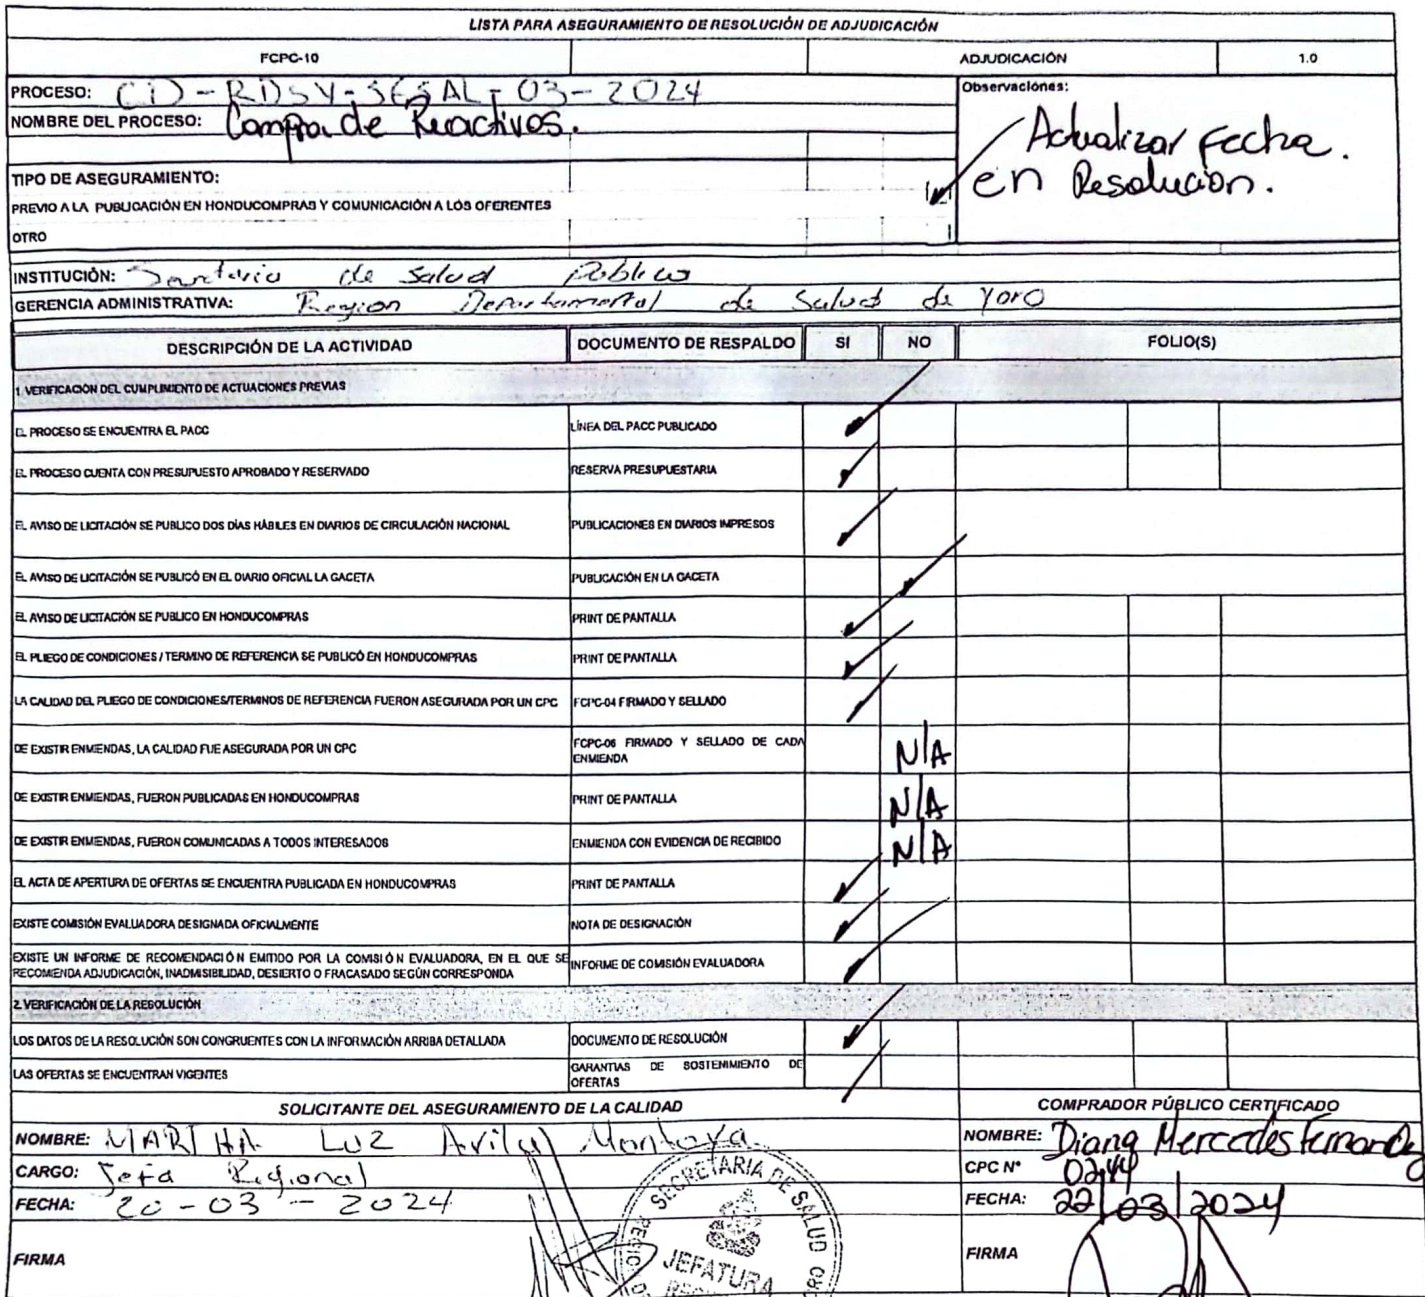 LISTA PARA ASEGURAMIENTO DE RESOLUCIÓN DE ADJUDICACIÓN
FCPC-10 ADJUDICACIÓN 1.0
PROCESO: CD-RDSY-SESAL-03-2024
NOMBRE DEL PROCESO: Compra de Reactivos.
Observaciones:
Actualizar Fecha.
en Resolución.
TIPO DE ASEGURAMIENTO:
PREVIO A LA PUBLICACIÓN EN HONDUCOMPRAS Y COMUNICACIÓN A LOS OFERENTES
OTRO
INSTITUCIÓN: Secretaria de Salud Publica
GERENCIA ADMINISTRATIVA: Region Departamental de Salud de Yoro
DESCRIPCIÓN DE LA ACTIVIDAD DOCUMENTO DE RESPALDO SI NO FOLIO(S)
1. VERIFICACIÓN DEL CUMPLIMIENTO DE ACTUACIONES PREVIAS
EL PROCESO SE ENCUENTRA EL PACC LÍNEA DEL PACC PUBLICADO
EL PROCESO CUENTA CON PRESUPUESTO APROBADO Y RESERVADO RESERVA PRESUPUESTARIA
EL AVISO DE LICITACIÓN SE PUBLICO DOS DÍAS HÁBILES EN DIARIOS DE CIRCULACIÓN NACIONAL PUBLICACIONES EN DIARIOS IMPRESOS
EL AVISO DE LICITACIÓN SE PUBLICÓ EN EL DIARIO OFICIAL LA GACETA PUBLICACIÓN EN LA GACETA
EL AVISO DE LICITACIÓN SE PUBLICO EN HONDUCOMPRAS PRINT DE PANTALLA
EL PLIEGO DE CONDICIONES / TERMINO DE REFERENCIA SE PUBLICÓ EN HONDUCOMPRAS PRINT DE PANTALLA
LA CALIDAD DEL PLIEGO DE CONDICIONES/TERMINOS DE REFERENCIA FUERON ASEGURADA POR UN CPC FCPC-04 FIRMADO Y SELLADO
DE EXISTIR ENMIENDAS, LA CALIDAD FUE ASEGURADA POR UN CPC FCPC-06 FIRMADO Y SELLADO DE CADA ENMIENDA N/A
DE EXISTIR ENMIENDAS, FUERON PUBLICADAS EN HONDUCOMPRAS PRINT DE PANTALLA N/A
DE EXISTIR ENMIENDAS, FUERON COMUNICADAS A TODOS INTERESADOS ENMIENDA CON EVIDENCIA DE RECIBIDO N/A
EL ACTA DE APERTURA DE OFERTAS SE ENCUENTRA PUBLICADA EN HONDUCOMPRAS PRINT DE PANTALLA
EXISTE COMISIÓN EVALUADORA DESIGNADA OFICIALMENTE NOTA DE DESIGNACIÓN
EXISTE UN INFORME DE RECOMENDACIÓN EMITIDO POR LA COMISIÓN EVALUADORA, EN EL QUE SE
RECOMIENDA ADJUDICACIÓN, INADMISIBILIDAD, DESIERTO O FRACASADO SEGÚN CORRESPONDA INFORME DE COMISIÓN EVALUADORA
2. VERIFICACIÓN DE LA RESOLUCIÓN
LOS DATOS DE LA RESOLUCIÓN SON CONGRUENTES CON LA INFORMACIÓN ARRIBA DETALLADA DOCUMENTO DE RESOLUCIÓN
LAS OFERTAS SE ENCUENTRAN VIGENTES GARANTIAS DE SOSTENIMIENTO DE OFERTAS
SOLICITANTE DEL ASEGURAMIENTO DE LA CALIDAD COMPRADOR PÚBLICO CERTIFICADO
NOMBRE: MARTHA Luz Avila Montoya NOMBRE: Diana Mercedes Fernandez
CARGO: Jefa Regional CPC N° 0244
FECHA: 20-03-2024 FECHA: 22/03/2024
FIRMA FIRMA
SECRETARIA DE SALUD
JEFATURA